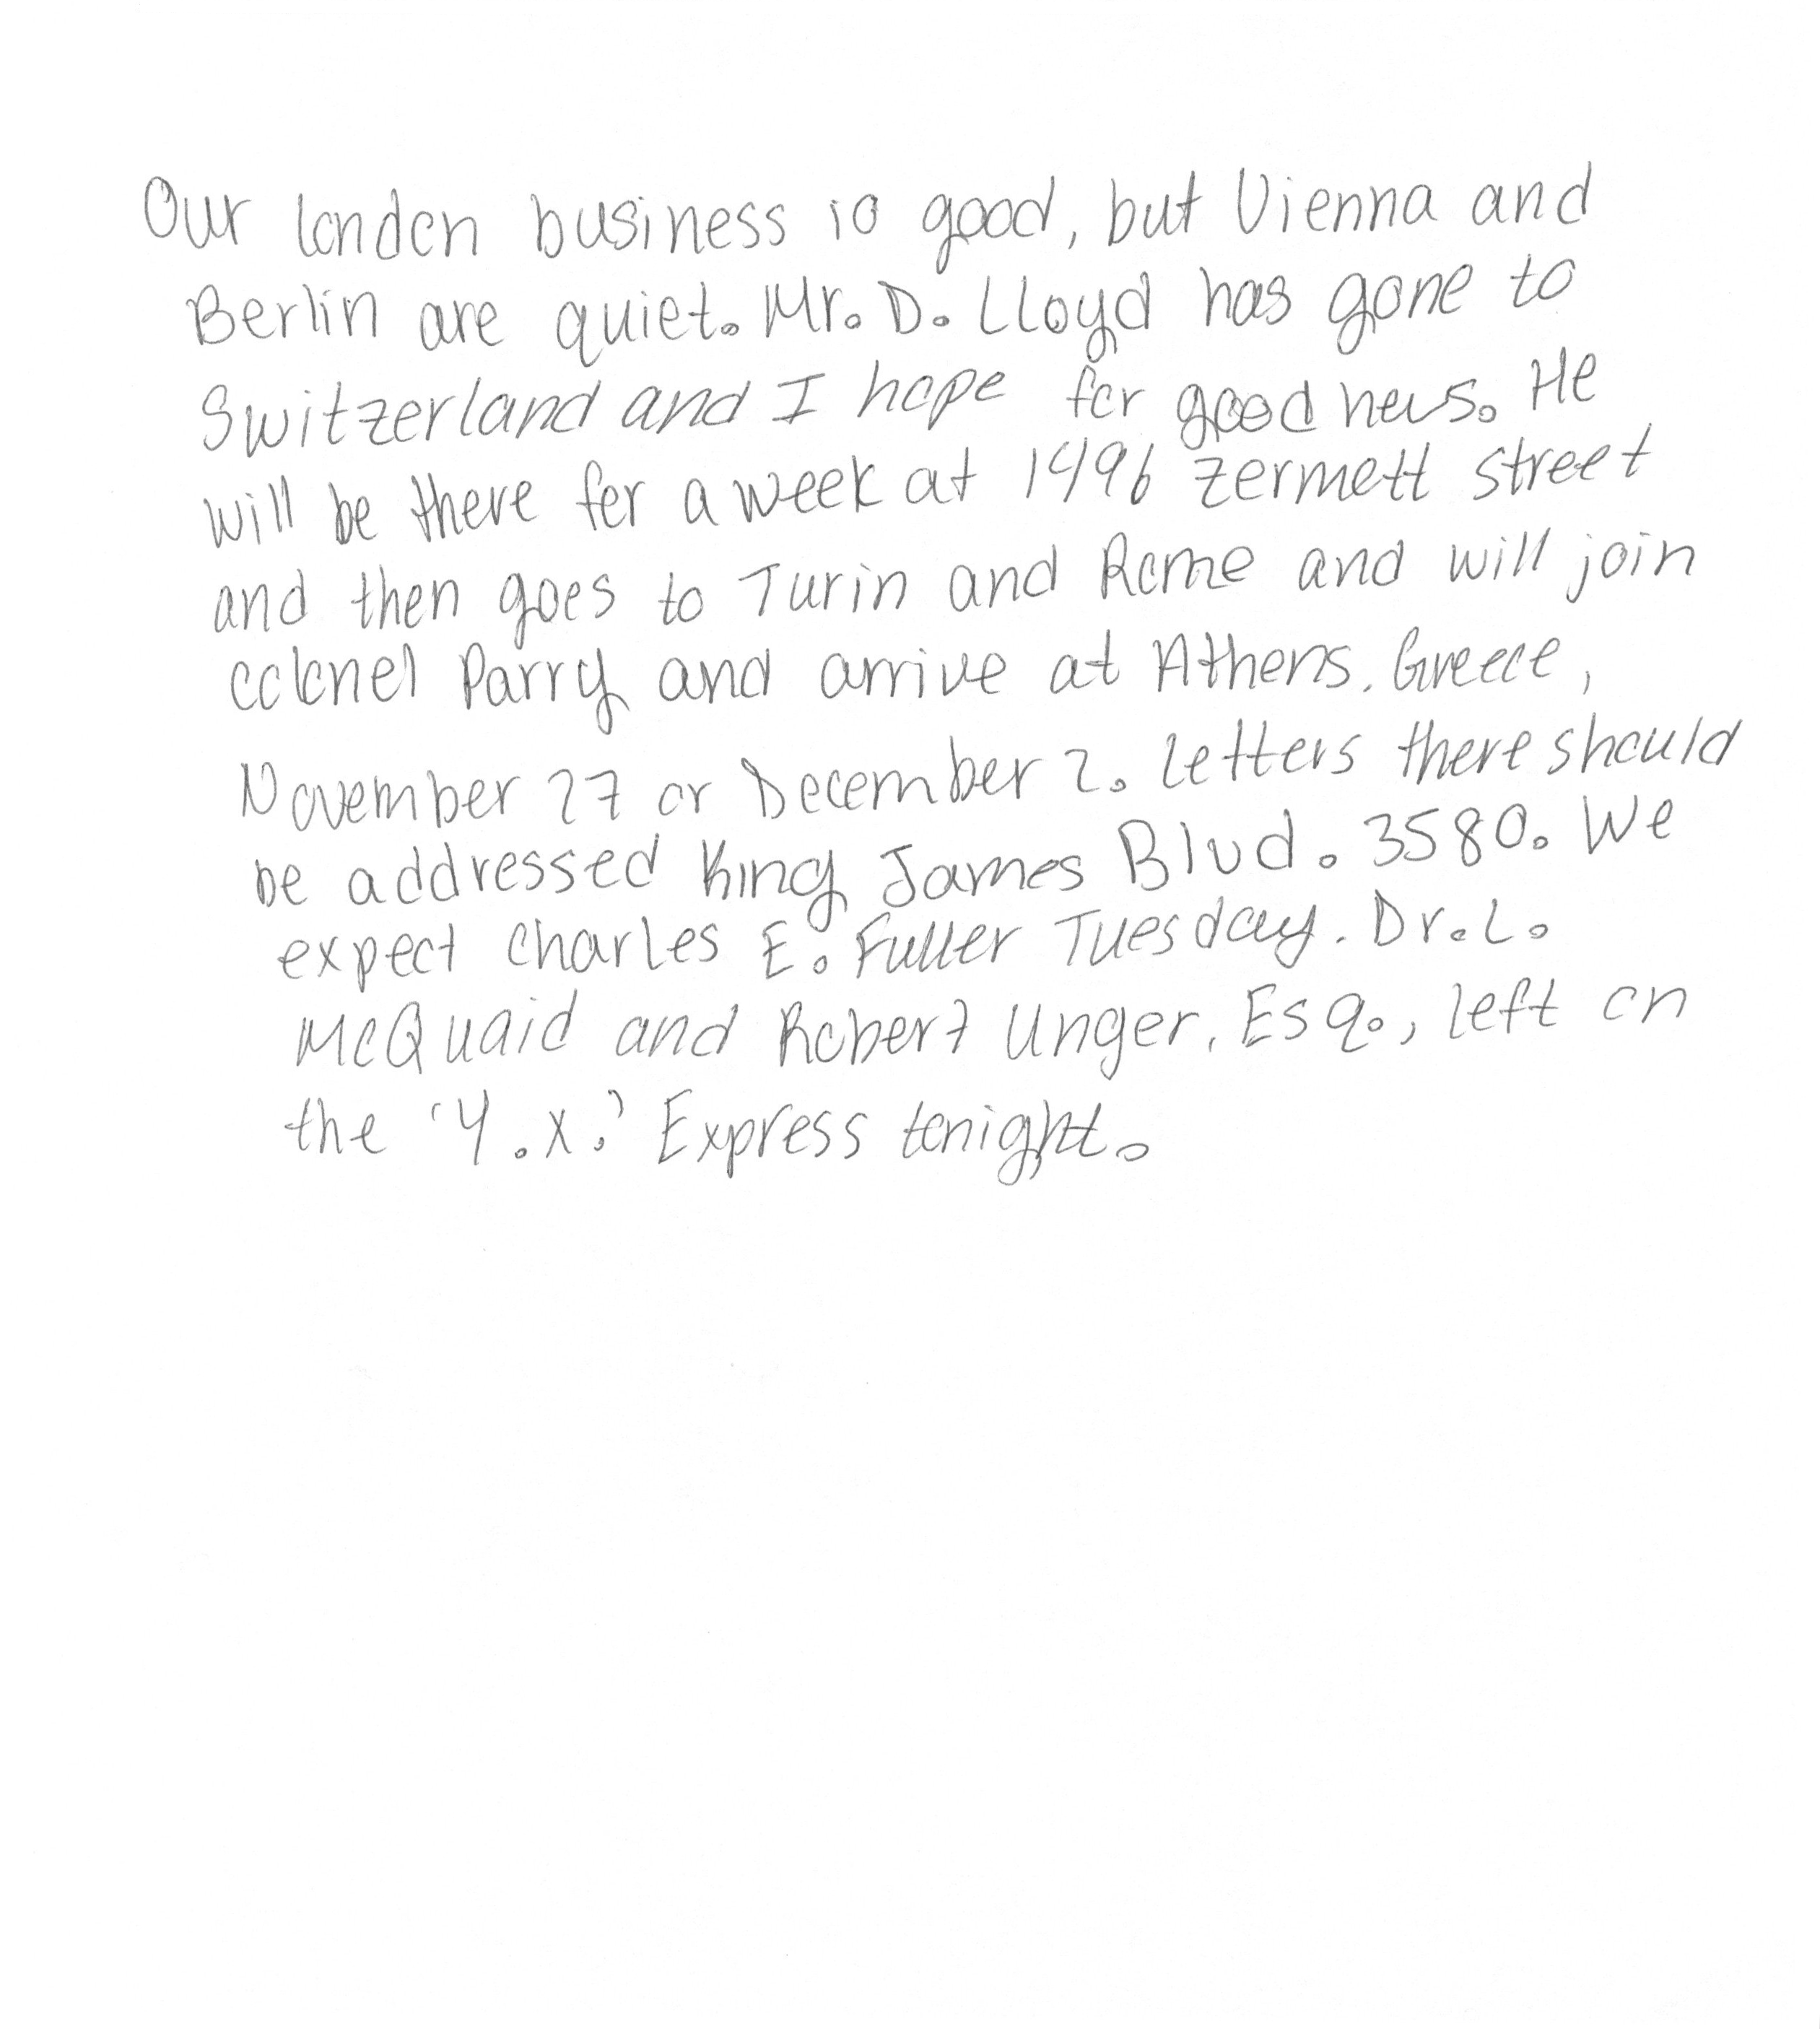 Our london business is good, but Vienna and
Berlin are quiet. Mr. D. Lloyd has gone to
Switzerland and I hope for good news. He
will be there for a week at 1496 zermott street
and then goes to Turin and Rome and will join
colonel Parry and arrive at Athens. Greece,
November 27 or December 2. letters there should
be addressed King James Blvd. 3580. We
expect Charles E. Fuller Tuesday. Dr. L.
McQuaid and Robert Unger. Esq., left on
the 'Y.X.' Express tonight.